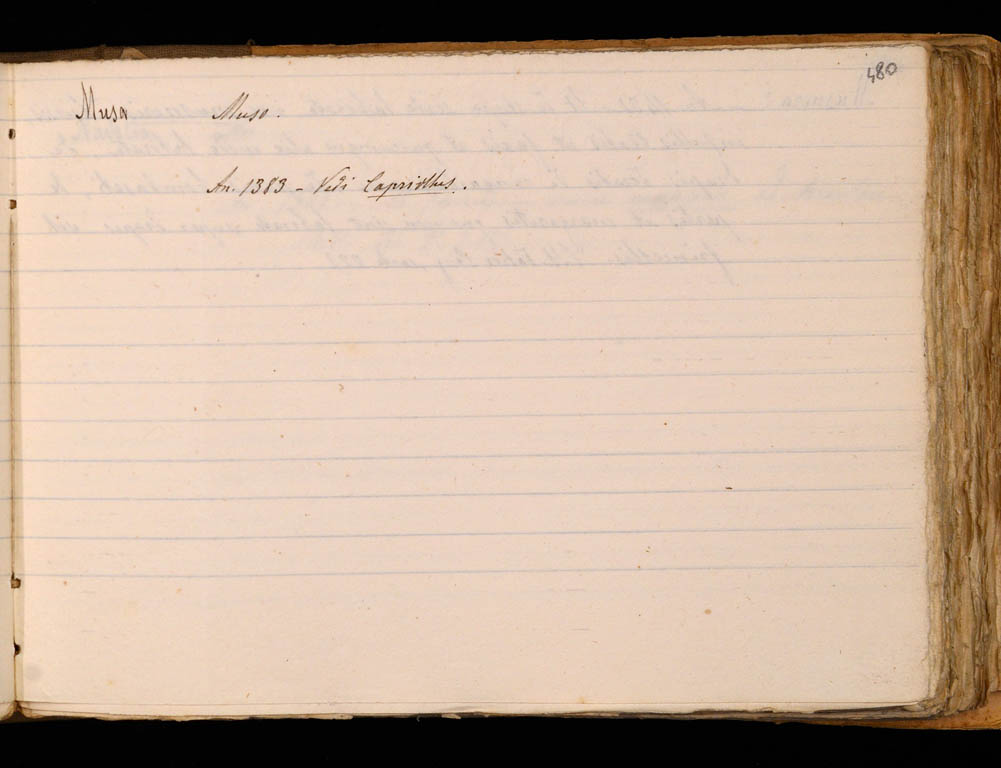 480
Musa Muso.
An. 1383 - Vedi Capriolhus.